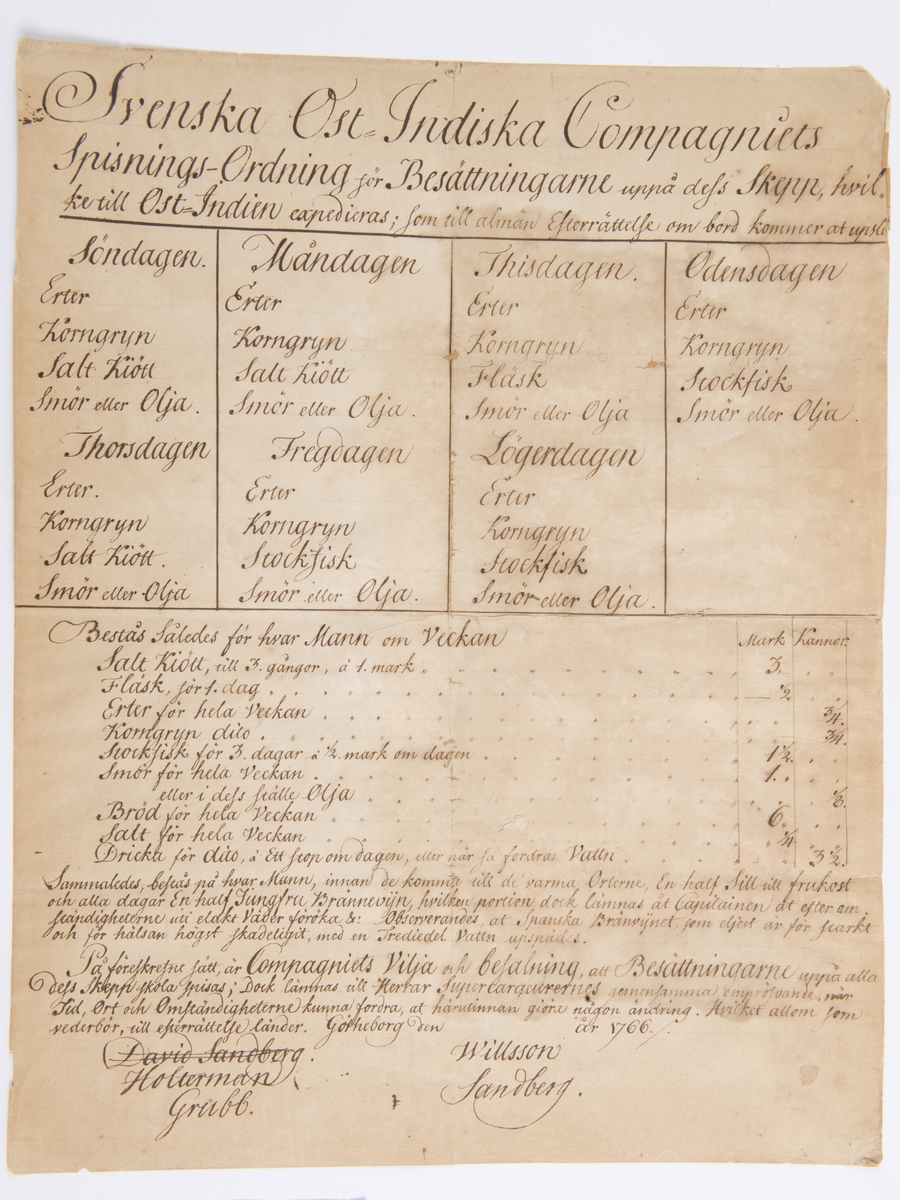 Svenska Ost-Indiska Compagniets
Spisnings-Ordning för Besättningarne uppå dess Skepp, hvil-
ke till Ost-Indien expedieras; som till almän Efterrättelse om bord kommer at upslå
Söndagen.
Erter
Korngryn
Salt Kiött
Smör eller Olja.
Måndagen
Erter
Korngryn
Salt Kiött
Smör eller Olja.
Thisdagen.
Erter
Korngryn
Fläsk
Smör eller Olja
Odensdagen
Erter
Korngryn
Stockfisk
Smör eller Olja.
Thorsdagen
Erter.
Korngryn
Salt Kiött.
Smör eller Olja
Fregdagen
Erter
Korngryn
Stockfisk
Smör eller Olja.
Lögerdagen
Erter
Korngryn
Stockfisk
Smör eller Olja.
Bestås Således för hvar Mann om Veckan Mark Kannor.
Salt Kiött, till 3. gångor, á 1. mark 3.
Fläsk, för 1. dag ½
Erter för hela Veckan ¾.
Korngryn dito ¾.
Stockfisk för 3. dagar á ½. mark om dagen 1½.
Smör för hela Veckan 1.
eller i dess ställe Olja ⅛.
Bröd för hela Veckan 6.
Salt för hela Veckan ¼
Dricka för dito, á Ett stop om dagen, eller när så fordras Vattn 3½.
Sammaledes, bestås på hvar Mann, innan de komma till de varma Orterne, En half Sill till frukost
och alla dagar En half Jungfru Brännevijn, hvilken portion dock lämnas åt Capitainen åt efter om-
ständigheterne uti elakt Väder föröka &: Observerandes, at Spanska Bränvijnet, som eljest är för starkt
och för hälsan högst skadeligit, med en Trediedel Vattn upspädes.
På föreskrefne sätt, är Compagniets Vilja och befalning, att Besättningarne uppå alla
dess Skepp skola spisas; Dock lämnas till Herrar Supercargeurernes gemensamma ompröfvande, när
Tid, Ort och Omständigheterne kunna fordra, at härutinnan giöra någon ändring. Hvilket allom som
vederbör, till efterrättelse länder. Götheborg den år 1766.
David Sandberg.
Holterman
Grubb.
Willsson
Sandberg.